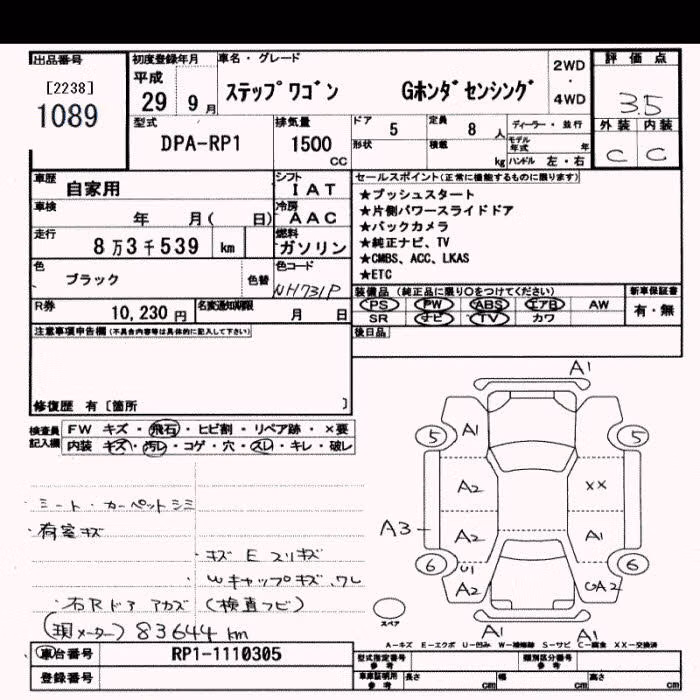 出品番号
[2238]
1089
初度登録年月
平成
29 9月
車名・グレード
ステップワゴン Gホンダセンシング
2WD
・
4WD
評価点
3.5
外装 内装
C C
型式
DPA-RP1
排気量
1500
CC
ドア 5
定員 8 人
形状
積載 kg
ディーラー・並行
モデル年式 年
ハンドル 左・右
車歴
自家用
シフト
IAT
車検
年 月( 日)
冷房
AAC
走行
8万3千539 km
燃料
ガソリン
色
ブラック
色替
色コード
NH731P
R券
10,230 円
名変通知期限
月 日
セールスポイント(正常に機能するものに限ります)
★プッシュスタート
★片側パワースライドドア
★バックカメラ
★純正ナビ、TV
★CMBS、ACC、LKAS
★ETC
装備品(純正品に限り○をつけてください)
PS PW ABS エアB AW
SR ナビ TV カワ
新車保証書
有・無
後日品
注意事項申告欄(不具合内容等は具体的に記入して下さい)
修復歴 有〔箇所 〕
検査員記入欄
FW キズ・飛石・ヒビ割・リペア跡・×要
内装 キズ・汚レ・コゲ・穴・スレ・キレ・破レ
・ミート・カーペットシミ
・荷室キズ
・キズ E スリキズ
・Wキャップキズ、ワレ
・右Rドア アカズ (検査フビ)
(現メーター) 83644km
車台番号
RP1-1110305
登録番号
A1
5 A1 5
A2 XX
A3 A2 A1
6 U1 6
A2 A2
スペア
A1 A1
A-キズ E-エクボ U-凹み W-補修跡 S-サビ C-腐食 XX-交換済
型式指定番号
参考
類別区分番号
参考
車庫証明用
参考
長さ cm
幅 cm
高さ cm